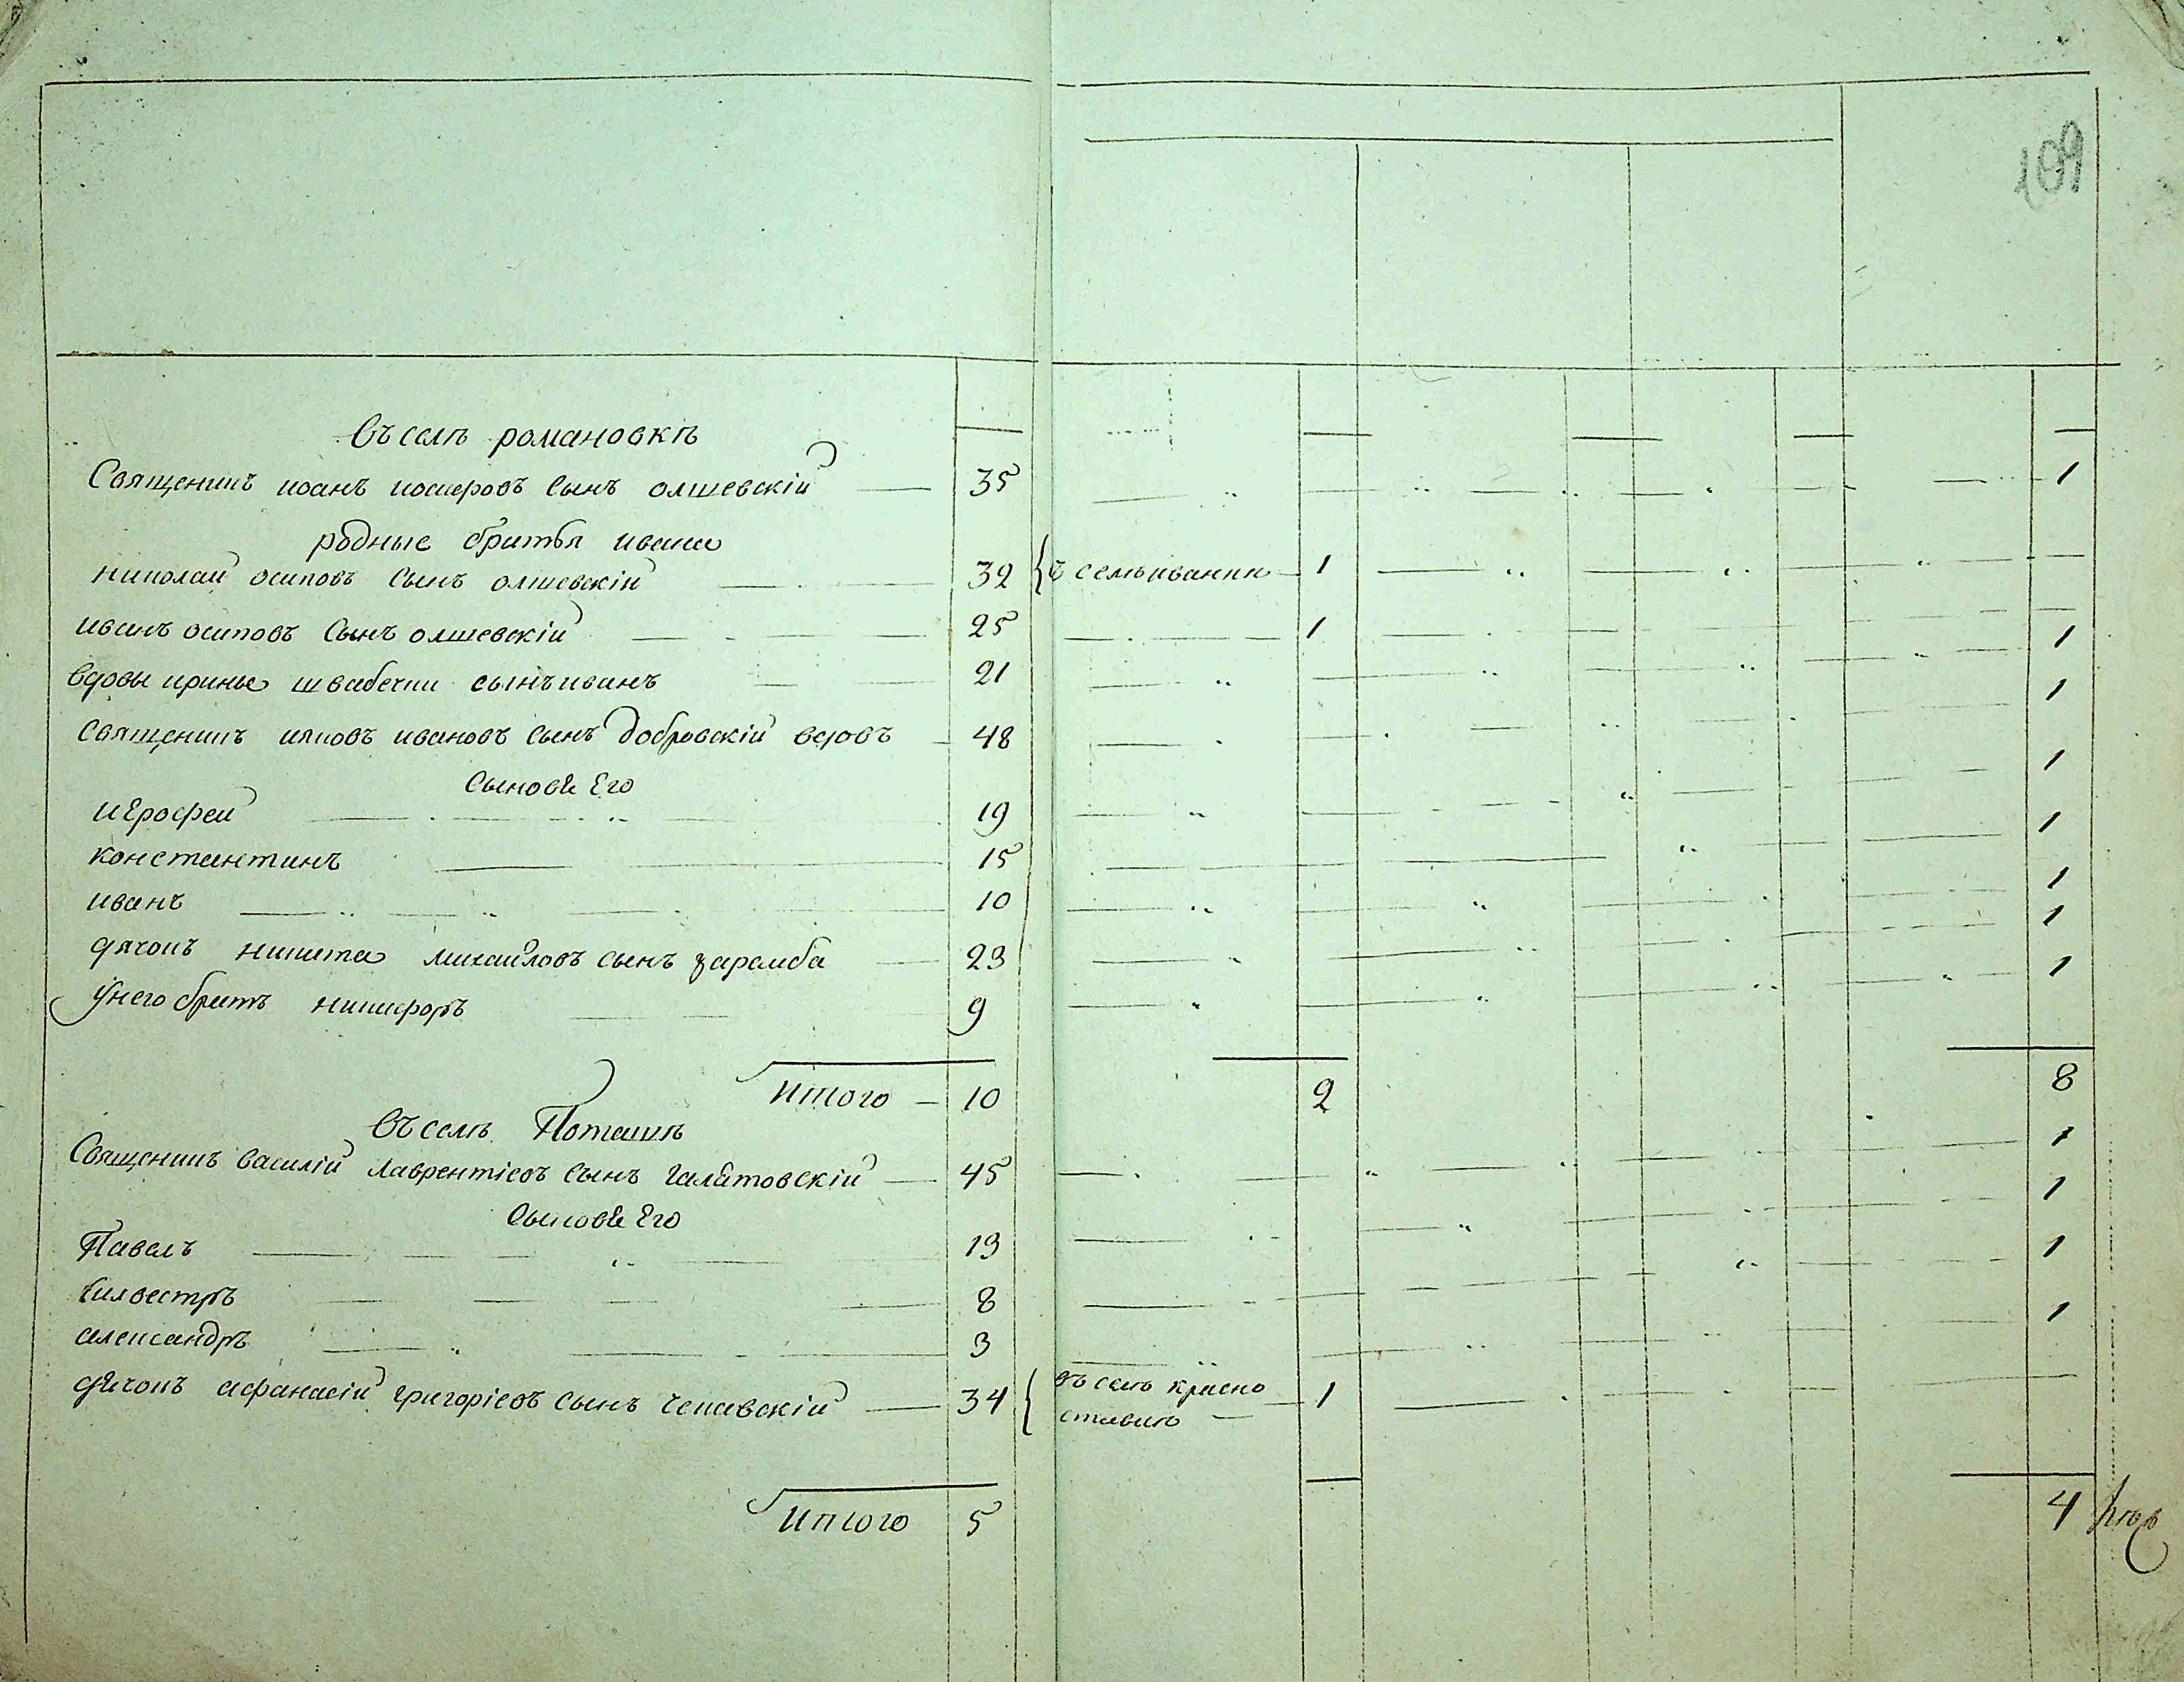 109
Въ селѣ романовкѣ
Священикъ иоанъ иосифовъ сынъ олшевскій — 35 — 1
родные братья ивана
николай осиповъ сынъ олшевскій — 32 въ селѣ иванки — 1
иванъ осиповъ сынъ олшевскій — 25 — 1
вдовы ирины швабечки сынъ иванъ — 21 — 1
священикъ ияковъ ивановъ сынъ добровскій вдовъ — 48 — 1
сынове Его
иЕрофей — 19 — 1
константинъ — 15 — 1
иванъ — 10 — 1
дячокъ никита михайловъ сынъ заремба — 23 — 1
у него братъ никифоръ — 9 — 1
Итого — 10 2 8
Въ селѣ Поташѣ
Священикъ василій лаврентіевъ сынъ галятовскій — 45 — 1
сынове Его
Павелъ — 13 — 1
силвестръ — 8 — 1
александръ — 3 — 1
дячокъ афанасій григоріевъ сынъ — 34 въ селѣ красно — 1
ставкѣ —
Итого 5 4